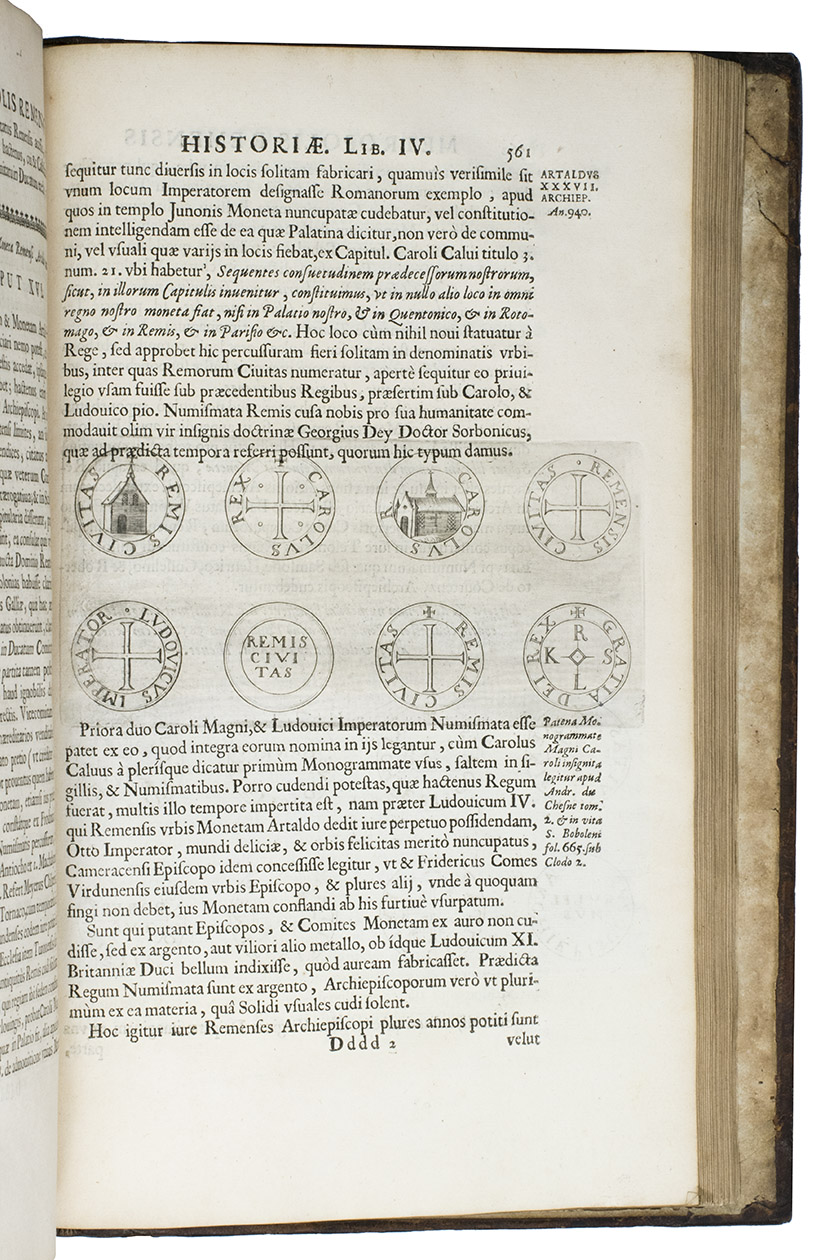 HISTORIÆ. LIB. IV. 561
sequitur tunc diuersis in locis solitam fabricari, quamuìs verisimile sit
vnum locum Imperatorem designasse Romanorum exemplo, apud
quos in templo Junonis Moneta nuncupatæ cudebatur, vel constitutio-
nem intelligendam esse de ea quæ Palatina dicitur, non verò de commu-
ni, vel vsuali quæ varijs in locis fiebat, ex Capitul. Caroli Calui titulo 3.
num. 21. vbi habetur, Sequentes consuetudinem prædecessorum nostrorum,
sicut, in illorum Capitulis inuenitur, constituimus, vt in nullo alio loco in omni
regno nostro moneta fiat, nisi in Palatio nostro, & in Quentonico, & in Roto-
mago, & in Remis, & in Parisio &c. Hoc loco cùm nihil noui statuatur à
Rege, sed approbet hic percussuram fieri solitam in denominatis vrbi-
bus, inter quas Remorum Ciuitas numeratur, apertè sequitur eo priui-
legio vsam fuisse sub præcedentibus Regibus, præsertim sub Carolo, &
Ludouico pio. Numismata Remis cusa nobis pro sua humanitate com-
modauit olim vir insignis doctrinæ Georgius Dey Doctor Sorbonicus,
quæ ad prædicta tempora referri possunt, quorum hic typum damus.
ARTALDVS
XXXVII.
ARCHIEP.
An. 940.
REMIS CIVITAS
CAROLVS REX
CAROLVS R
REMENSIS CIVITAS
LVDOVICVS IMPERATOR
REMIS
CIVI
TAS
REMIS CIVITAS
GRATIA DEI REX
R
K S
L
Priora duo Caroli Magni, & Ludouici Imperatorum Numismata esse
patet ex eo, quod integra eorum nomina in ijs legantur, cùm Carolus
Caluus à plerisque dicatur primùm Monogrammate vsus, saltem in si-
gillis, & Numismatibus. Porro cudendi potestas, quæ hactenus Regum
fuerat, multis illo tempore impertita est, nam præter Ludouicum IV.
qui Remensis vrbis Monetam Artaldo dedit iure perpetuo possidendam,
Otto Imperator, mundi deliciæ, & orbis felicitas meritò nuncupatus,
Cameracensi Episcopo idem concessisse legitur, vt & Fridericus Comes
Virdunensis eiusdem vrbis Episcopo, & plures alij, vnde à quoquam
fingi non debet, ius Monetam conflandi ab his furtiuè vsurpatum.
Patena Mo-
nogrammate
Magni Ca-
roli insignita
legitur apud
Andr. du
Chesne tom.
2. & in vita
S. Boboleni
fol. 665. sub
Clodo 2.
Sunt qui putant Episcopos, & Comites Monetam ex auro non cu-
disse, sed ex argento, aut viliori alio metallo, ob idque Ludouicum XI.
Britanniæ Duci bellum indixisse, quòd auream fabricasset. Prædicta
Regum Numismata sunt ex argento, Archiepiscoporum verò vt pluri-
mùm ex ea materia, quâ Solidi vsuales cudi solent.
Hoc igitur iure Remenses Archiepiscopi plures annos potiti sunt
Dddd 2 velut